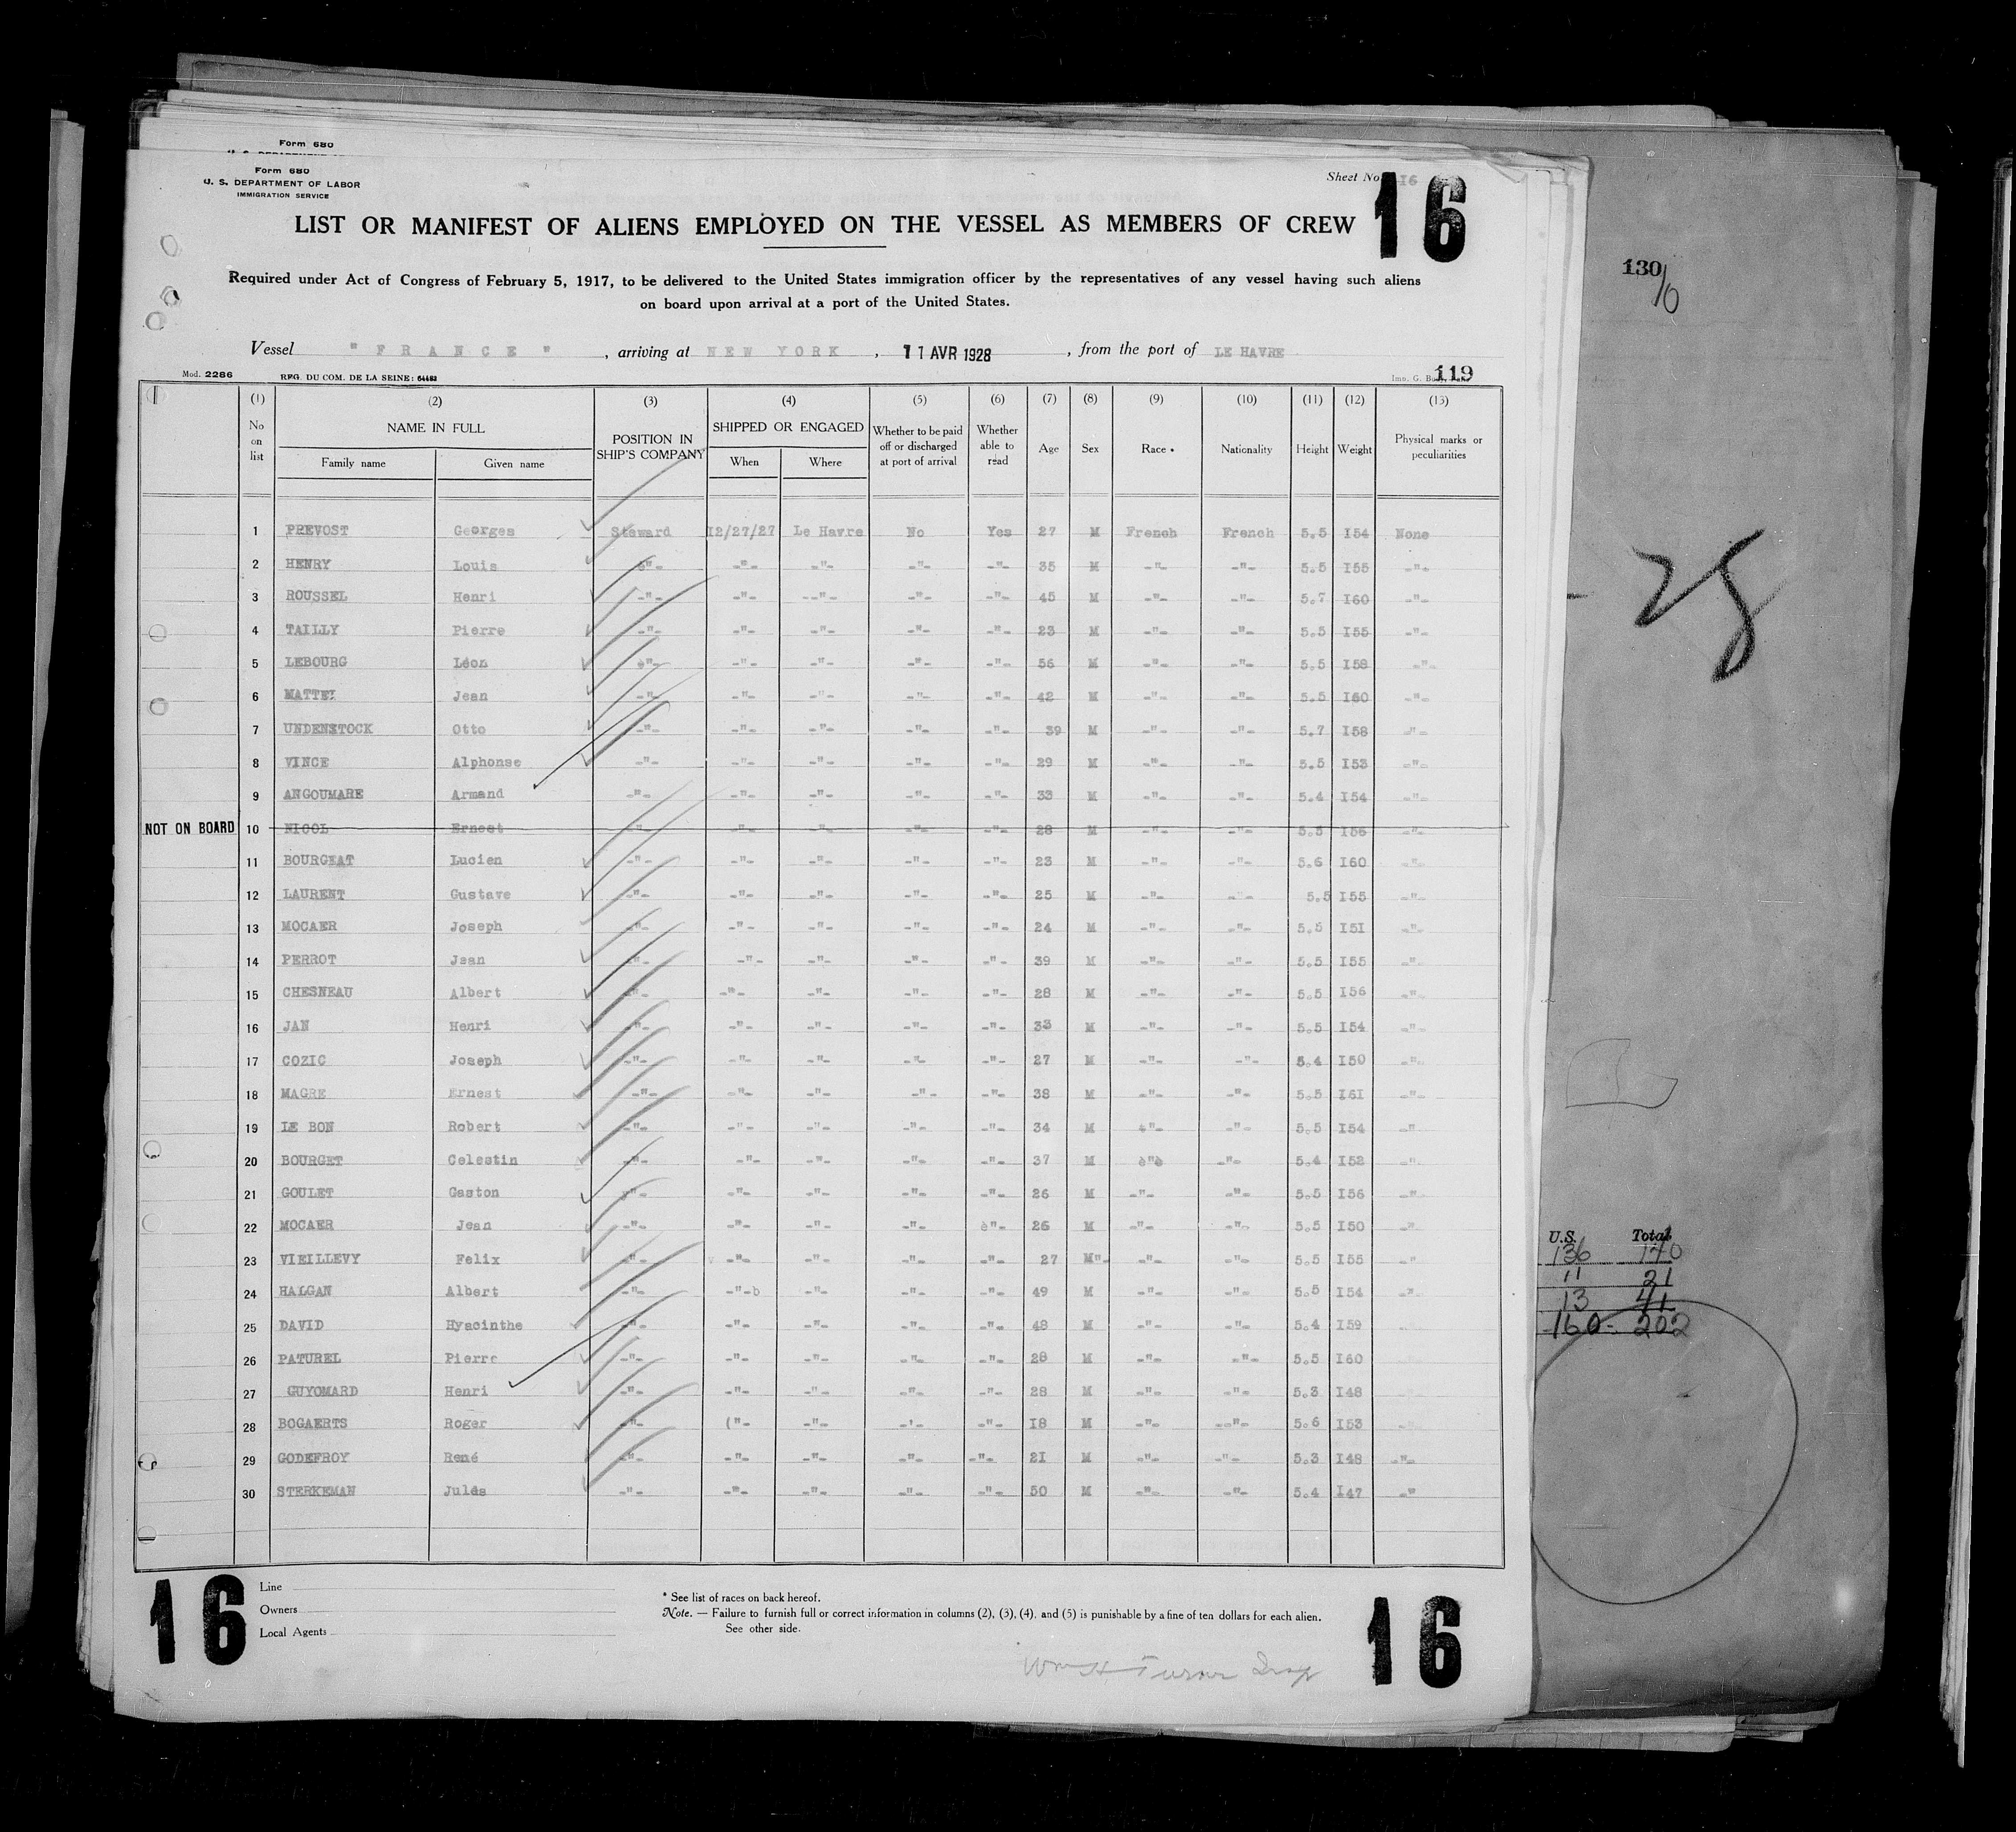 Form 680
Form 680
U. S. DEPARTMENT OF LABOR
IMMIGRATION SERVICE
Sheet No. 16
16
LIST OR MANIFEST OF ALIENS EMPLOYED ON THE VESSEL AS MEMBERS OF CREW
Required under Act of Congress of February 5, 1917, to be delivered to the United States immigration officer by the representatives of any vessel having such aliens
on board upon arrival at a port of the United States.
Vessel "FRANCE", arriving at NEW YORK, 11 AVR 1928, from the port of LE HAVRE
Mod. 2286 REG. DU COM. DE LA SEINE: 64483 119
(1) (2) (3) (4) (5) (6) (7) (8) (9) (10) (11) (12) (13)
No on list NAME IN FULL POSITION IN SHIP'S COMPANY SHIPPED OR ENGAGED Whether to be paid off or discharged at port of arrival Whether able to read Age Sex Race * Nationality Height Weight Physical marks or peculiarities
Family name Given name When Where
1 PREVOST Georges Steward I2/27/27 Le Havre No Yes 27 M French French 5.5 I54 None
2 HENRY Louis -"- -"- -"- -"- -"- 35 M -"- -"- 5.5 I55 -"-
3 ROUSSEL Henri -"- -"- --"- -"- -"- 45 M -"- -"- 5.7 I60 -"-
4 TAILLY Pierre -"- -"- -"- -"- -"- 23 M -"- -"- 5.5 I55 -"-
5 LEBOURG Léon -"- -"- -"- -"- -"- 56 M -"- -"- 5.5 I58 -"-
6 MATTEI Jean -"- -"- -"- -"- -"- 42 M -"- -"- 5.5 I60 -"-
7 UNDENSTOCK Otto -"- -"- -"- -"- -"- 39 M -"- -"- 5.7 I58 -"-
8 VINCE Alphonse -"- -"- -"- -"- -"- 29 M -"- -"- 5.5 I53 -"-
9 ANGOUMARE Armand -"- -"- -"- -"- -"- 33 M -"- -"- 5.4 I54 -"-
NOT ON BOARD 10 NICOL Ernest -"- -"- -"- -"- -"- 28 M -"- -"- 5.5 I56 -"-
11 BOURGEAT Lucien -"- -"- -"- -"- -"- 23 M -"- -"- 5.6 I60 -"-
12 LAURENT Gustave -"- -"- -"- -"- -"- 25 M -"- -"- 5.5 I55 -"-
13 MOCAER Joseph -"- -"- -"- -"- -"- 24 M -"- -"- 5.5 I5I -"-
14 PERROT Jean -"- -"- -"- -"- -"- 39 M -"- -"- 5.5 I55 -"-
15 CHESNEAU Albert -"- -"- -"- -"- -"- 28 M -"- -"- 5.5 I56 -"-
16 JAN Henri -"- -"- -"- -"- -"- 33 M -"- -"- 5.5 I54 -"-
17 COZIC Joseph -"- -"- -"- -"- -"- 27 M -"- -"- 5.4 I50 -"-
18 MAGRE Ernest -"- -"- -"- -"- -"- 38 M -"- -"- 5.5 I6I -"-
19 LE BON Robert -"- -"- -"- -"- -"- 34 M -"- -"- 5.5 I54 -"
20 BOURGET Celestin -"- -"- -"- -"- -"- 37 M è"è -"- 5.4 I52 -"-
21 GOULET Gaston -"- -"- -"- -"- -"- 26 M -"- -"- 5.5 I56 -"-
22 MOCAER Jean -"- -"- -"- -"- è"- 26 M -"- -"- 5.5 I50 -"-
23 VIEILLEVY Felix -"- -"- -"- -"- -"- 27 M"- -"- -"- 5.5 I55 -"
24 HALGAN Albert -"- -"-b -"- -"- -"- 49 M -"- -"- 5.5 I54 -"-
25 DAVID Hyacinthe -"- -"- -"- -"- -"- 48 M -"- -"- 5.4 I59
26 PATUREL Pierre -"- -"- -"- -"- -"- 28 M -"- -"- 5.5 I60
27 GUYOMARD Henri -"- -"- -"- -"- -"- 28 M -"- -"- 5.3 I48
28 BOGAERTS Roger -"- ("- -"- -'- -"- I8 M -"- --"- 5.6 I53
29 GODEFROY René -"- -"- -"- -"- -"- 2I M -"- -"- 5.3 I48 -"-
30 STERKEMAN Jules -"- -"- -"- -"- -"- 50 M -"- -"- 5.4 I47 -"
16
Line
Owners
Local Agents
* See list of races on back hereof.
Note. — Failure to furnish full or correct information in columns (2), (3), (4), and (5) is punishable by a fine of ten dollars for each alien.
See other side.
Wm H Turner Insp
16
130/10
U.S. Total
136
11 21
13 41
160 - 202